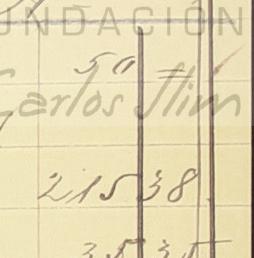 FUNDACIÓN
50 =
Carlos Slim
215 38
35 35